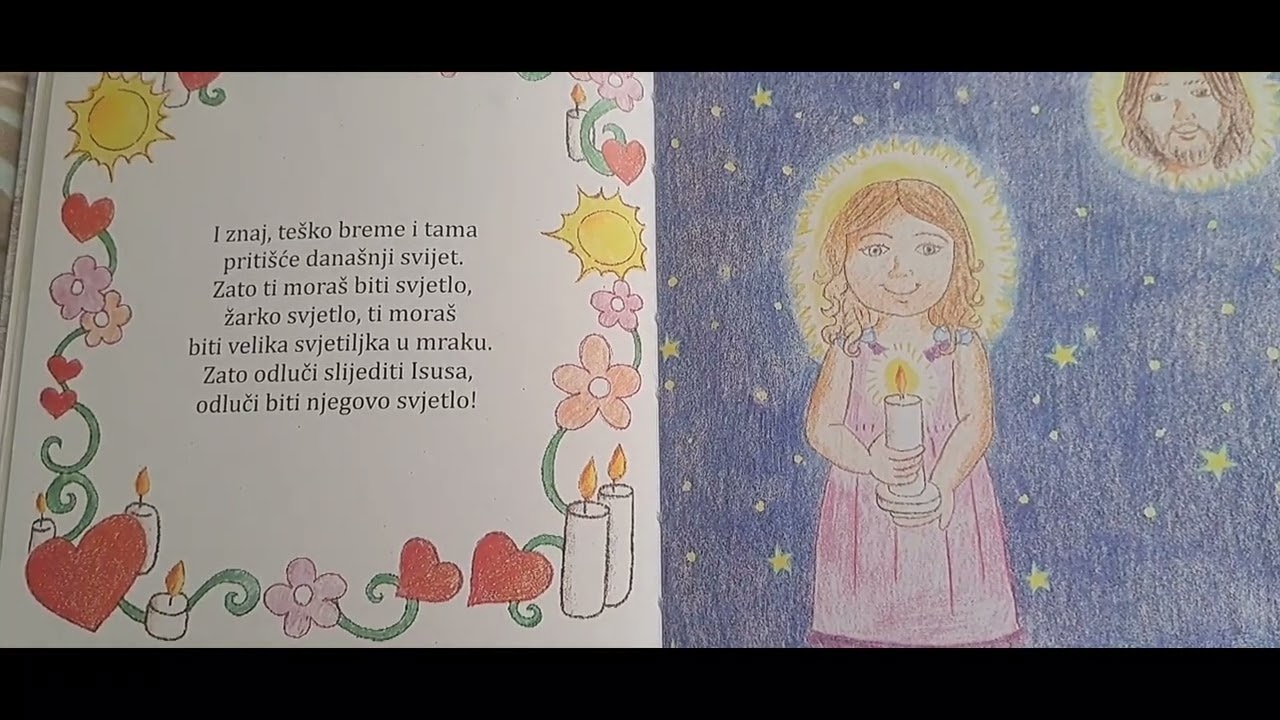 I znaj, teško breme i tama
pritišće današnji svijet.
Zato ti moraš biti svjetlo,
žarko svjetlo, ti moraš
biti velika svjetiljka u mraku.
Zato odluči slijediti Isusa,
odluči biti njegovo svjetlo!